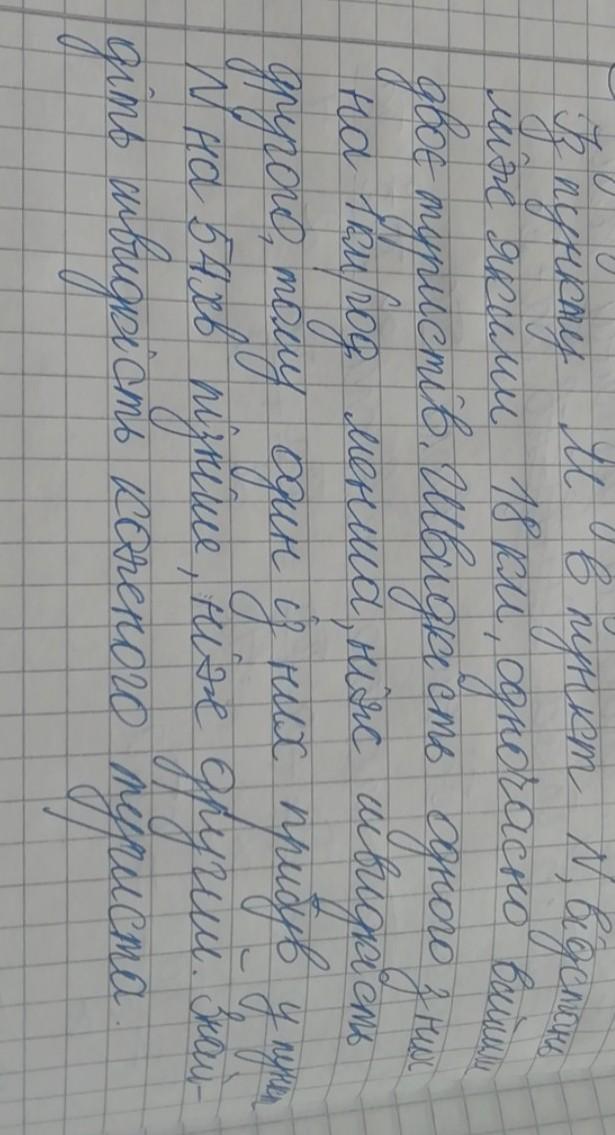 Із пункту М в пункт N, відстань
між якими 18 км, одночасно вийшли
двоє туристів. Швидкість одного з них
на 1км/год менша, ніж швидкість
другого, тому один із них прибув у пункт
N на 54хв пізніше, ніж другий. Знай-
діть швидкість кожного туриста.